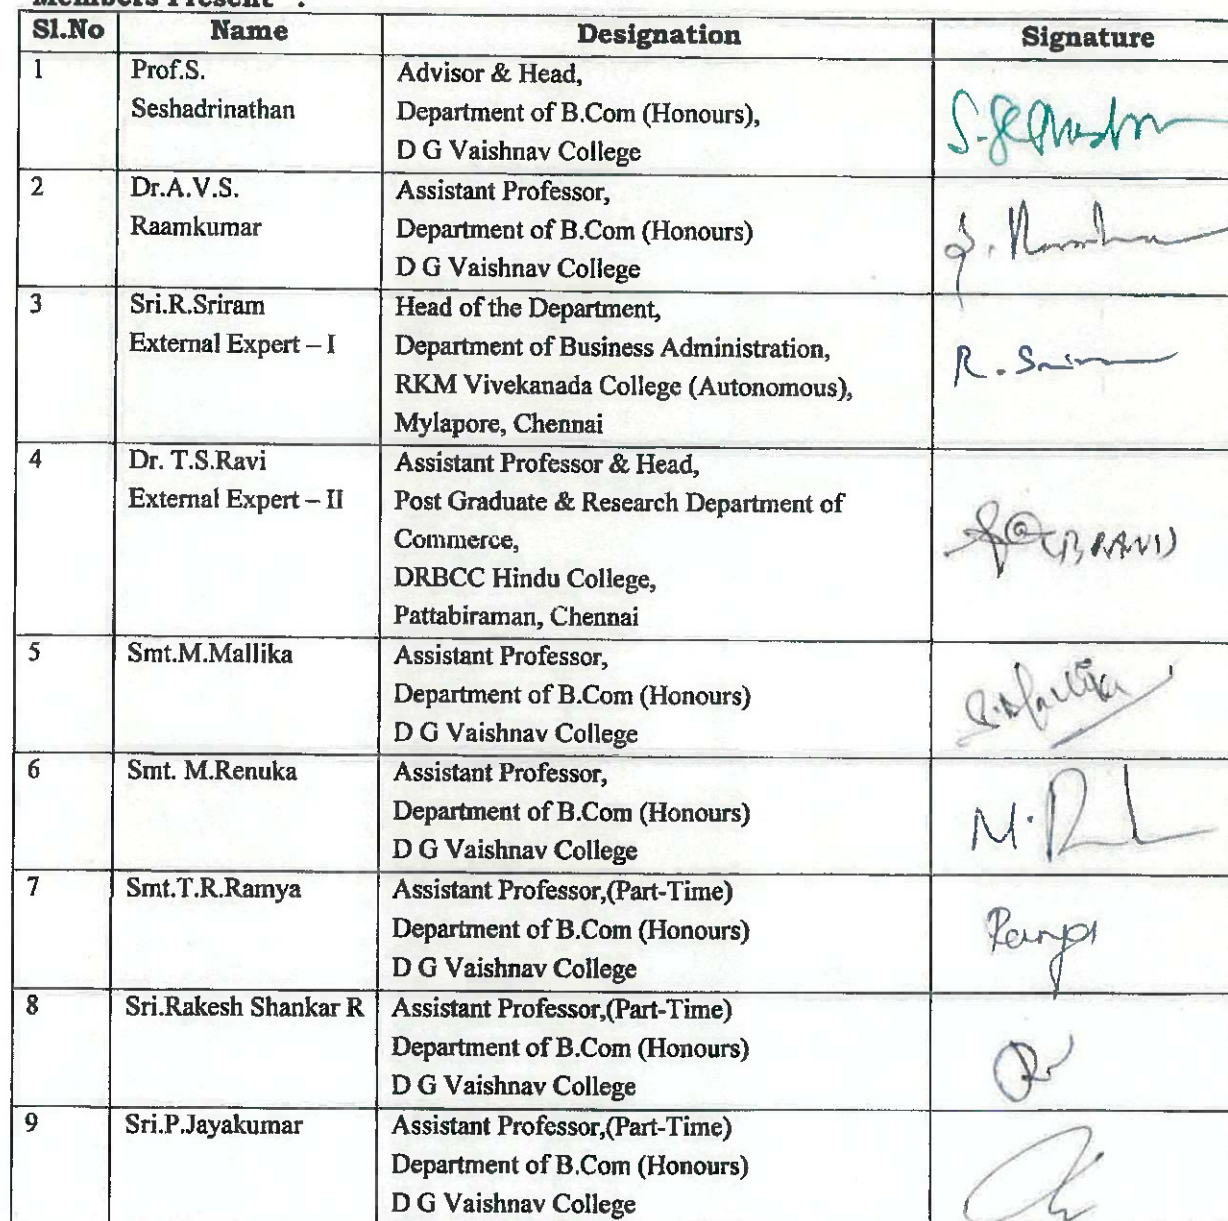 Members Present :
Sl.No Name Designation Signature
1 Prof.S. Advisor & Head,
Seshadrinathan Department of B.Com (Honours),
D G Vaishnav College
2 Dr.A.V.S. Assistant Professor,
Raamkumar Department of B.Com (Honours)
D G Vaishnav College
3 Sri.R.Sriram Head of the Department,
External Expert – I Department of Business Administration,
RKM Vivekanada College (Autonomous),
Mylapore, Chennai
4 Dr. T.S.Ravi Assistant Professor & Head,
External Expert – II Post Graduate & Research Department of
Commerce,
DRBCC Hindu College,
Pattabiraman, Chennai
5 Smt.M.Mallika Assistant Professor,
Department of B.Com (Honours)
D G Vaishnav College
6 Smt. M.Renuka Assistant Professor,
Department of B.Com (Honours)
D G Vaishnav College
7 Smt.T.R.Ramya Assistant Professor,(Part-Time)
Department of B.Com (Honours)
D G Vaishnav College
8 Sri.Rakesh Shankar R Assistant Professor,(Part-Time)
Department of B.Com (Honours)
D G Vaishnav College
9 Sri.P.Jayakumar Assistant Professor,(Part-Time)
Department of B.Com (Honours)
D G Vaishnav College